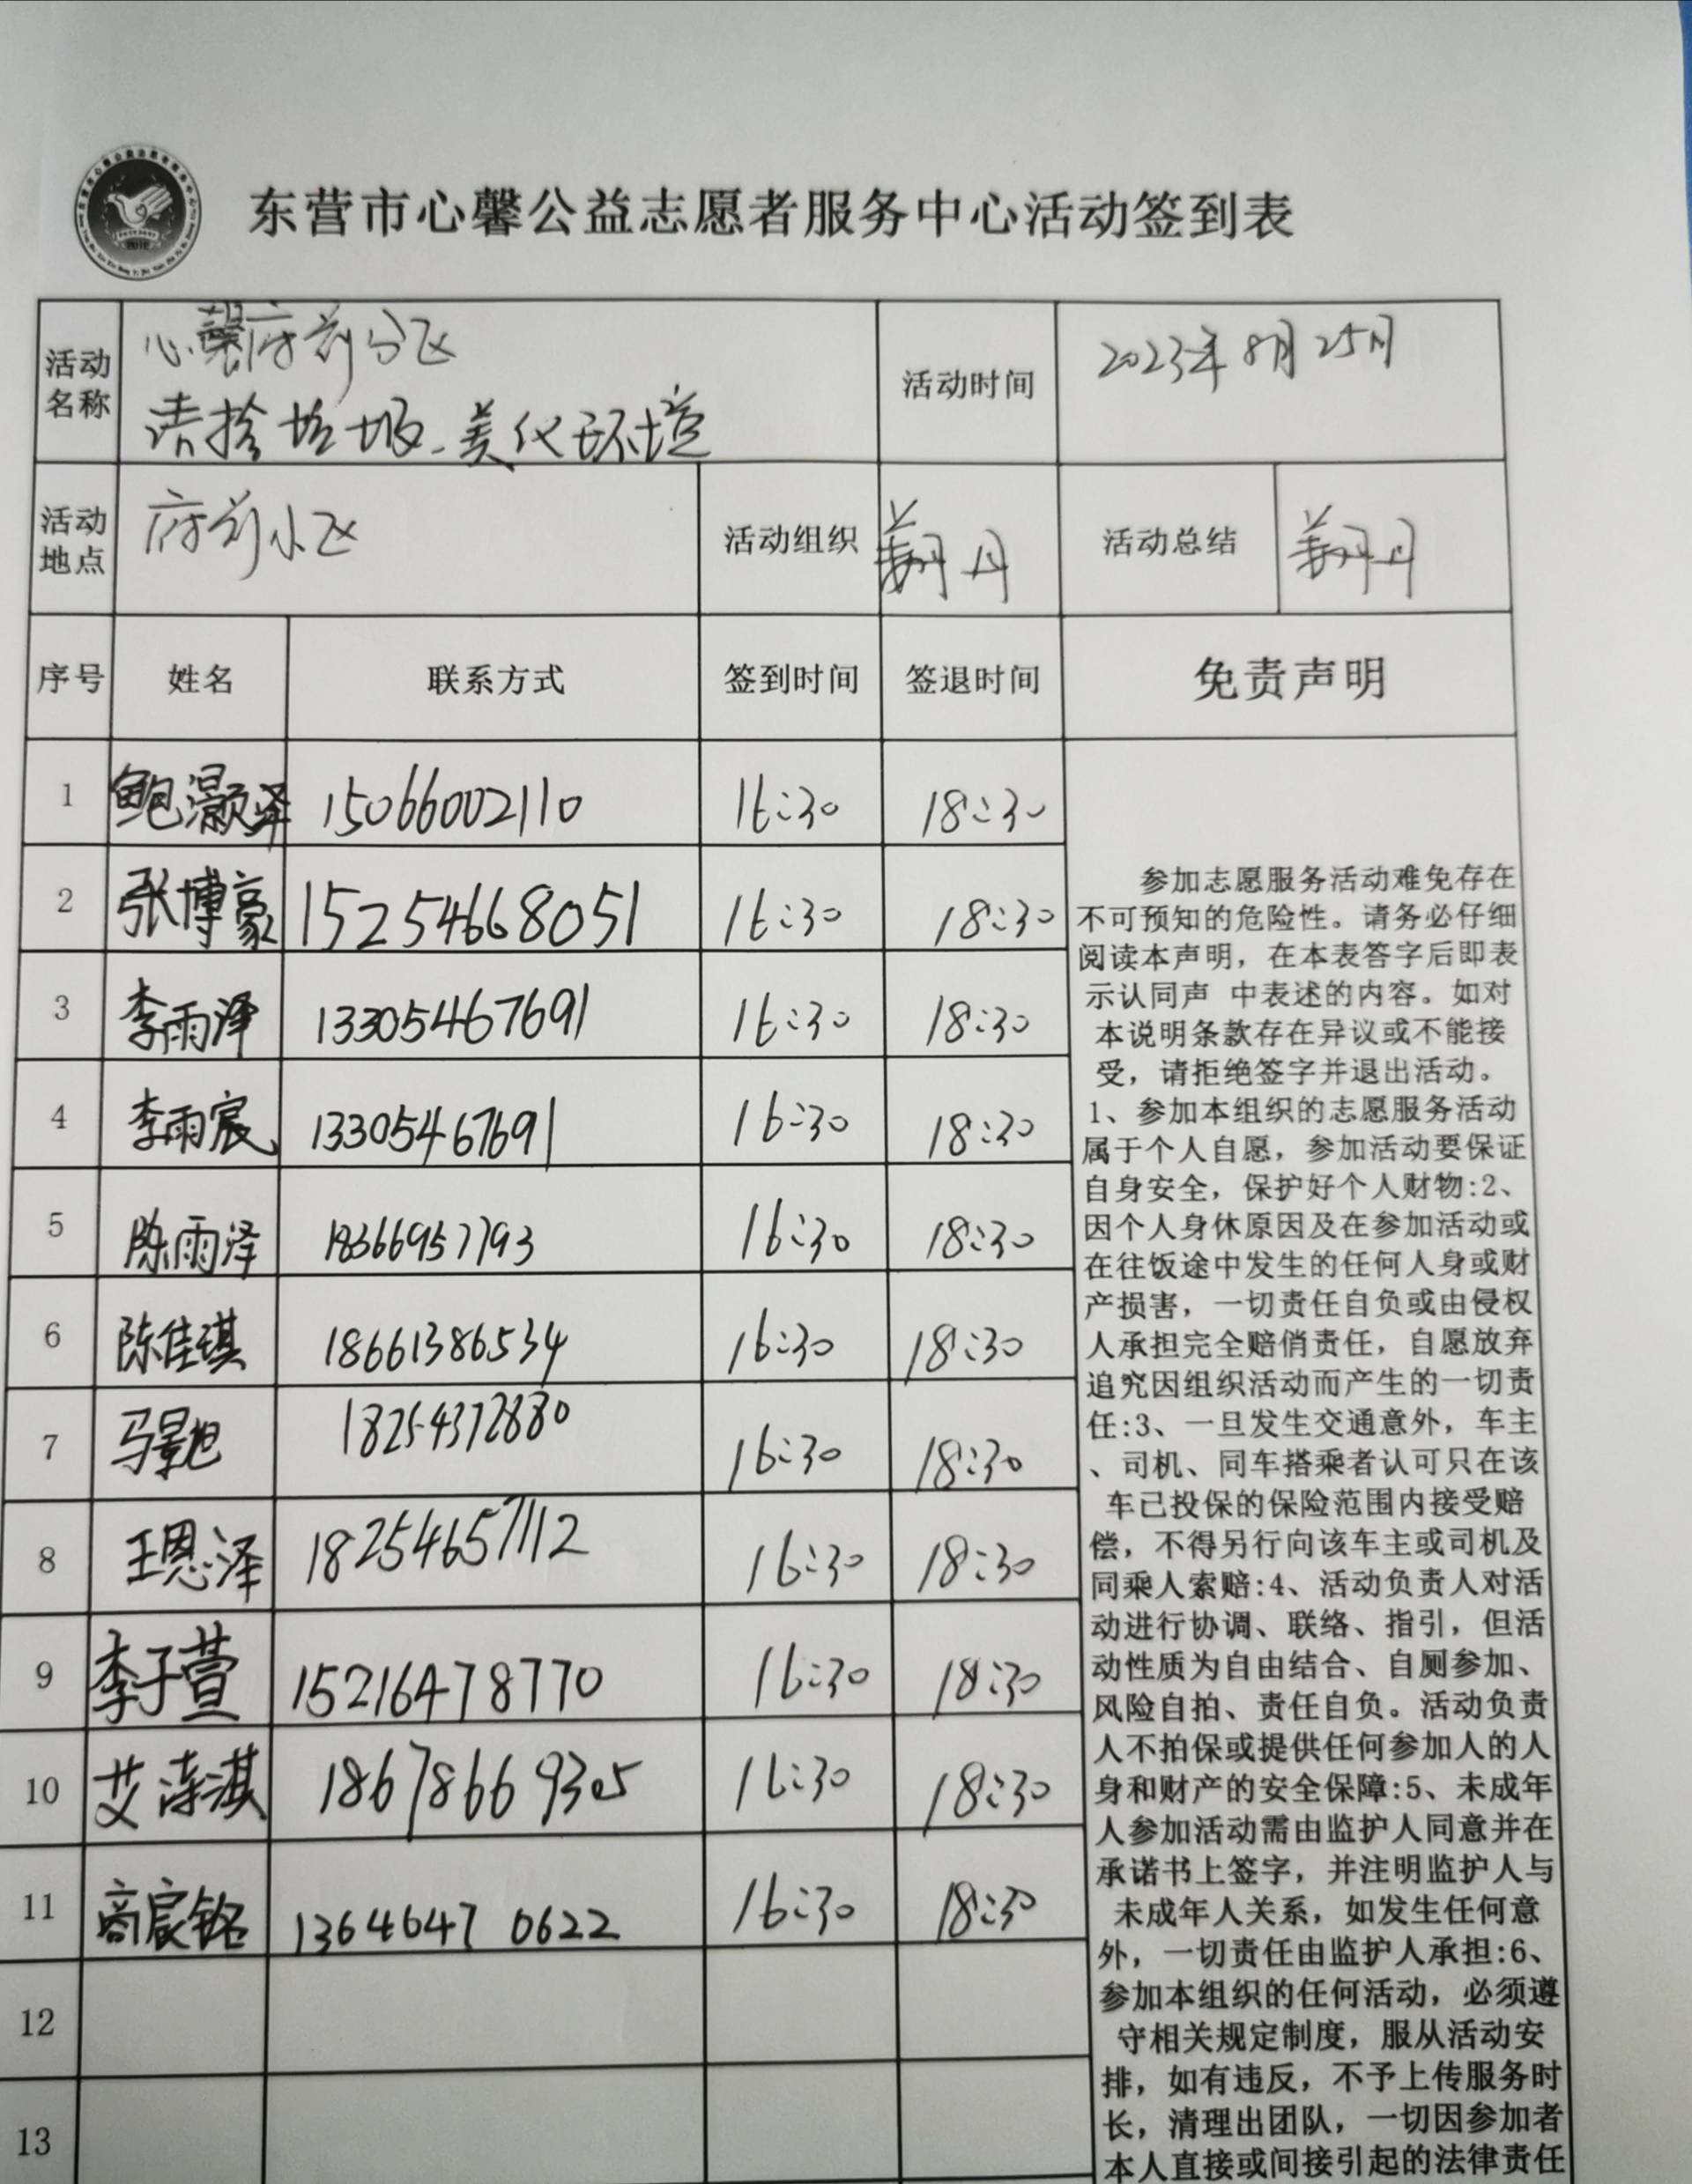 东营市心馨公益志愿者服务中心活动签到表
活动名称 心馨府前分区 清捡垃圾、美化环境 活动时间 2023年8月25日
活动地点 府前小区 活动组织 活动总结
序号 姓名 联系方式 签到时间 签退时间 免责声明
1 鲍灏泽 15066002110 16:30 18:30
2 张博豪 15254668051 16:30 18:30
3 李雨泽 13305467691 16:30 18:30
4 李雨宸 13305467691 16:30 18:30
5 陈雨泽 18366957793 16:30 18:30
6 陈佳琪 18661386534 16:30 18:30
7 马景旭 18254372880 16:30 18:30
8 王恩泽 18254657112 16:30 18:30
9 李子萱 15216478770 16:30 18:30
10 艾淇 18678669305 16:30 18:30
11 商宸铭 13646470622 16:30 18:30
12
13
参加志愿服务活动难免存在
不可预知的危险性。请务必仔细
阅读本声明，在本表答字后即表
示认同声 中表述的内容。如对
本说明条款存在异议或不能接
受，请拒绝签字并退出活动。
1、参加本组织的志愿服务活动
属于个人自愿，参加活动要保证
自身安全，保护好个人财物:2、
因个人身休原因及在参加活动或
在往饭途中发生的任何人身或财
产损害，一切责任自负或由侵权
人承担完全赔俏责任，自愿放弃
追究因组织活动而产生的一切责
任:3、一旦发生交通意外，车主
、司机、同车搭乘者认可只在该
车已投保的保险范围内接受赔
偿，不得另行向该车主或司机及
同乘人索赔:4、活动负责人对活
动进行协调、联络、指引，但活
动性质为自由结合、自厕参加、
风险自拍、责任自负。活动负责
人不拍保或提供任何参加人的人
身和财产的安全保障:5、未成年
人参加活动需由监护人同意并在
承诺书上签字，并注明监护人与
未成年人关系，如发生任何意
外，一切责任由监护人承担:6、
参加本组织的任何活动，必须遵
守相关规定制度，服从活动安
排，如有违反，不予上传服务时
长，清理出团队，一切因参加者
本人直接或间接引起的法律责任